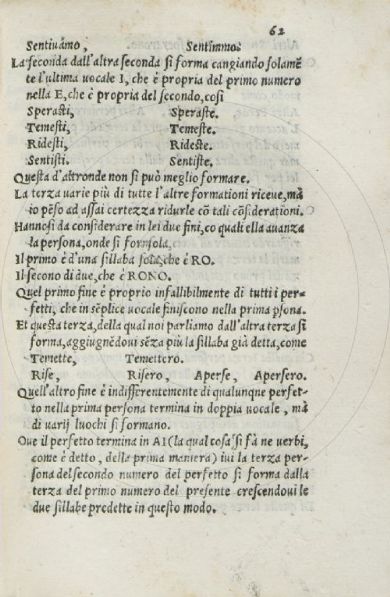 62
Sentiuámo, Sentimmo.
La seconda dall'altra seconda si forma cangiando solamẽ
te l'ultima vocale I, che è propria del primo numero
nella E, che è propria del secondo, così
Sperasti, Speraste.
Temesti, Temeste.
Ridesti, Rideste.
Sentisti. Sentiste.
Questa d'altronde non si può meglio formare.
La terza varie più di tutte l'altre formationi riceve, mà
io pẽso ad assai certezza ridurle cõ tali cõsiderationi.
Hannosi da considerare in lei due fini, co quali ella auanza
la persona, onde si forma
Il primo è d'una sillaba sola, che è RO.
Il secono di due, che è RONO.
Quel primo fine è proprio infallibilmente di tutti i per-
fetti, che in sẽplice vocale finiscono nella prima psona.
Et questa terza, della qual noi parliamo dall'altra terza si
forma, aggiugnẽdoui sẽza più la sillaba già detta, come
Temette, Temettero.
Rise, Risero, Aperse, Apersero.
Quell'altro fine è indifferentemente di qualunque perfet-
to nella prima persona termina in doppia vocale, mà
di varij luochi si formano.
Oue il perfetto termina in AI (la qual cosa si fà ne verbi,
come è detto, della prima maniera) iui la terza per-
sona del secondo numero del perfetto si forma dalla
terza del primo numero del presente crescendoui le
due sillabe predette in questo modo.